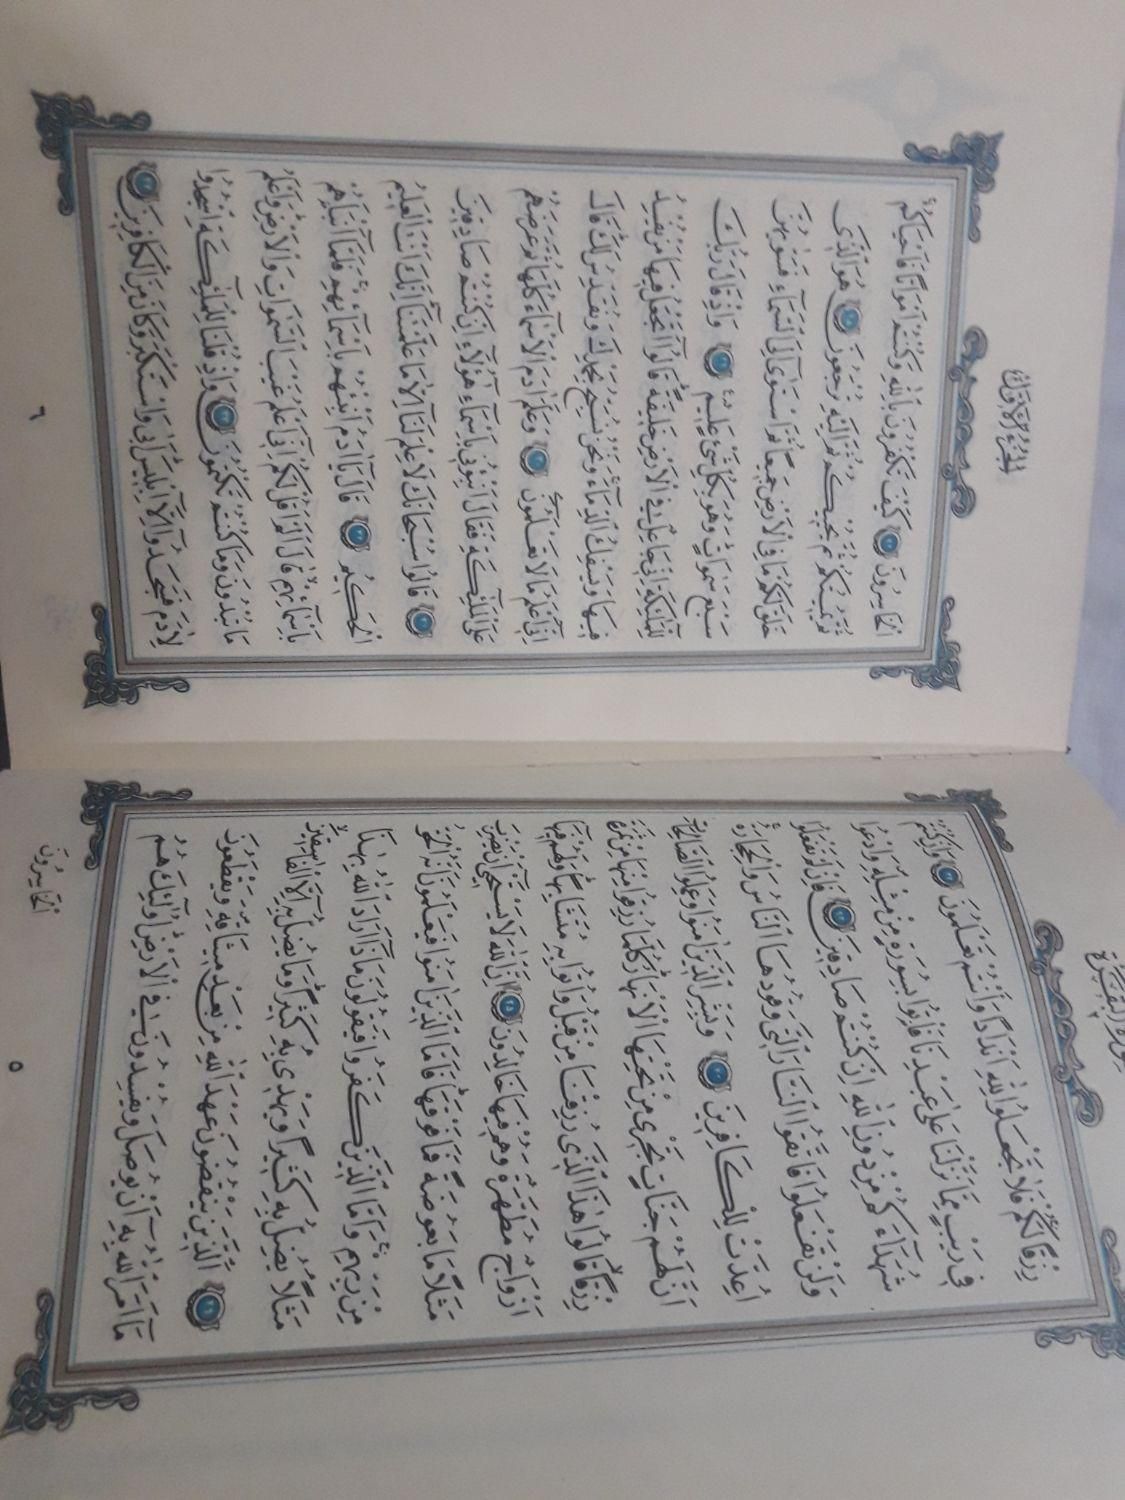 سُورَةُ الْبَقَرَةِ
رِزْقًا لَكُمْ فَلَا تَجْعَلُوا لِلّٰهِ اَنْدَادًا وَاَنْتُمْ تَعْلَمُونَ ٢٢ وَاِنْ كُنْتُمْ
فِى رَيْبٍ مِمَّا نَزَّلْنَا عَلٰى عَبْدِنَا فَاْتُوا بِسُورَةٍ مِنْ مِثْلِهِ وَادْعُوا
شُهَدَاءَكُمْ مِنْ دُونِ اللّٰهِ اِنْ كُنْتُمْ صَادِقِينَ ٢٣ فَاِنْ لَمْ تَفْعَلُوا
وَلَنْ تَفْعَلُوا فَاتَّقُوا النَّارَ الَّتِى وَقُودُهَا النَّاسُ وَالْحِجَارَةُ
اُعِدَّتْ لِلْكَافِرِينَ ٢٤ وَبَشِّرِ الَّذِينَ اٰمَنُوا وَعَمِلُوا الصَّالِحَاتِ
اَنَّ لَهُمْ جَنَّاتٍ تَجْرِى مِنْ تَحْتِهَا الْاَنْهَارُ كُلَّمَا رُزِقُوا مِنْهَا مِنْ ثَمَرَةٍ
رِزْقًا قَالُوا هٰذَا الَّذِى رُزِقْنَا مِنْ قَبْلُ وَاُتُوا بِهِ مُتَشَابِهًا وَلَهُمْ فِيهَا
اَزْوَاجٌ مُطَهَّرَةٌ وَهُمْ فِيهَا خَالِدُونَ ٢٥ اِنَّ اللّٰهَ لَا يَسْتَحْيِى اَنْ يَضْرِبَ
مَثَلًا مَا بَعُوضَةً فَمَا فَوْقَهَا فَاَمَّا الَّذِينَ اٰمَنُوا فَيَعْلَمُونَ اَنَّهُ الْحَقُّ
مِنْ رَبِّهِمْ وَاَمَّا الَّذِينَ كَفَرُوا فَيَقُولُونَ مَاذَا اَرَادَ اللّٰهُ بِهٰذَا
مَثَلًا يُضِلُّ بِهِ كَثِيرًا وَيَهْدِى بِهِ كَثِيرًا وَمَا يُضِلُّ بِهِ اِلَّا الْفَاسِقِينَ
٢٦ اَلَّذِينَ يَنْقُضُونَ عَهْدَ اللّٰهِ مِنْ بَعْدِ مِيثَاقِهِ وَيَقْطَعُونَ
مَا اَمَرَ اللّٰهُ بِهِ اَنْ يُوصَلَ وَيُفْسِدُونَ فِى الْاَرْضِ اُولٰئِكَ هُمُ
الْخَاسِرُونَ
٥
اَلْجُزْءُ الْاَوَّلُ
الْخَاسِرُونَ ٢٧ كَيْفَ تَكْفُرُونَ بِاللّٰهِ وَكُنْتُمْ اَمْوَاتًا فَاَحْيَاكُمْ
ثُمَّ يُمِيتُكُمْ ثُمَّ يُحْيِيكُمْ ثُمَّ اِلَيْهِ تُرْجَعُونَ ٢٨ هُوَ الَّذِى
خَلَقَ لَكُمْ مَا فِى الْاَرْضِ جَمِيعًا ثُمَّ اسْتَوٰى اِلَى السَّمَاءِ فَسَوّٰيهُنَّ
سَبْعَ سَمٰوَاتٍ وَهُوَ بِكُلِّ شَىْءٍ عَلِيمٌ ٢٩ وَاِذْ قَالَ رَبُّكَ
لِلْمَلٰئِكَةِ اِنِّى جَاعِلٌ فِى الْاَرْضِ خَلِيفَةً قَالُوا اَتَجْعَلُ فِيهَا مَنْ يُفْسِدُ
فِيهَا وَيَسْفِكُ الدِّمَاءَ وَنَحْنُ نُسَبِّحُ بِحَمْدِكَ وَنُقَدِّسُ لَكَ قَالَ
اِنِّى اَعْلَمُ مَا لَا تَعْلَمُونَ ٣٠ وَعَلَّمَ اٰدَمَ الْاَسْمَاءَ كُلَّهَا ثُمَّ عَرَضَهُمْ
عَلَى الْمَلٰئِكَةِ فَقَالَ اَنْبِؤُنِى بِاَسْمَاءِ هٰؤُلَاءِ اِنْ كُنْتُمْ صَادِقِينَ
٣١ قَالُوا سُبْحَانَكَ لَا عِلْمَ لَنَا اِلَّا مَا عَلَّمْتَنَا اِنَّكَ اَنْتَ الْعَلِيمُ
الْحَكِيمُ ٣٢ قَالَ يَا اٰدَمُ اَنْبِئْهُمْ بِاَسْمَائِهِمْ فَلَمَّا اَنْبَاَهُمْ
بِاَسْمَائِهِمْ قَالَ اَلَمْ اَقُلْ لَكُمْ اِنِّى اَعْلَمُ غَيْبَ السَّمٰوَاتِ وَالْاَرْضِ وَاَعْلَمُ
مَا تُبْدُونَ وَمَا كُنْتُمْ تَكْتُمُونَ ٣٣ وَاِذْ قُلْنَا لِلْمَلٰئِكَةِ اسْجُدُوا
لِاٰدَمَ فَسَجَدُوا اِلَّا اِبْلِيسَ اَبٰى وَاسْتَكْبَرَ وَكَانَ مِنَ الْكَافِرِينَ ٣٤
٦